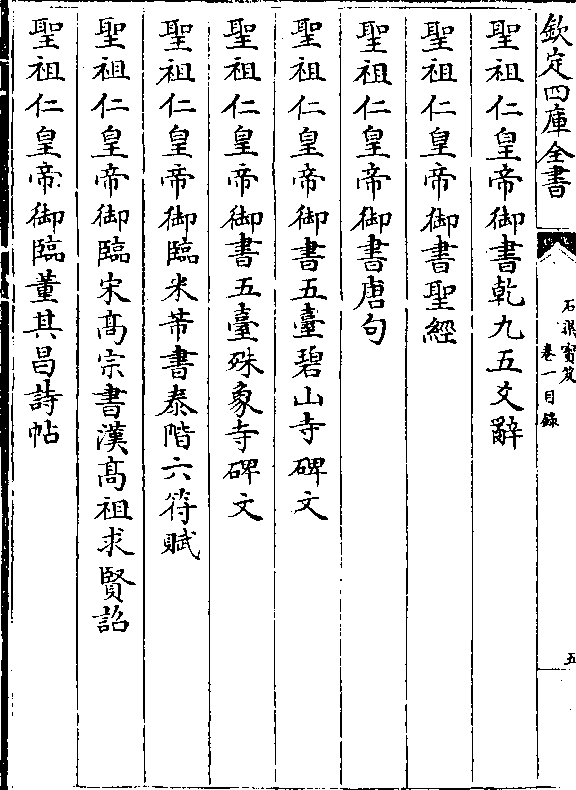 欽定四庫全書
石渠寳笈
卷一目錄
五
聖祖仁皇帝御書乾九五爻辭
聖祖仁皇帝御書聖經
聖祖仁皇帝御書唐句
聖祖仁皇帝御書五臺碧山寺碑文
聖祖仁皇帝御書五臺殊象寺碑文
聖祖仁皇帝御臨米芾書泰階六符賦
聖祖仁皇帝御臨宋髙宗書漢髙祖求賢詔
聖祖仁皇帝御臨董其昌詩帖